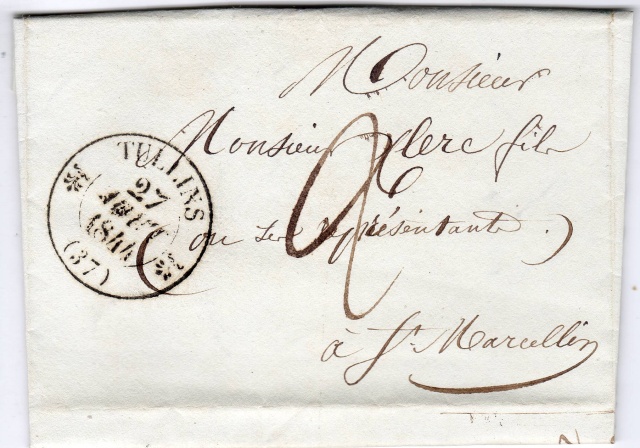 Monsieur
Monsieur Clerc fils
(ou ses représentants.)
à St. Marcellin
TULLINS
27
AOUT
1844
(37)
2